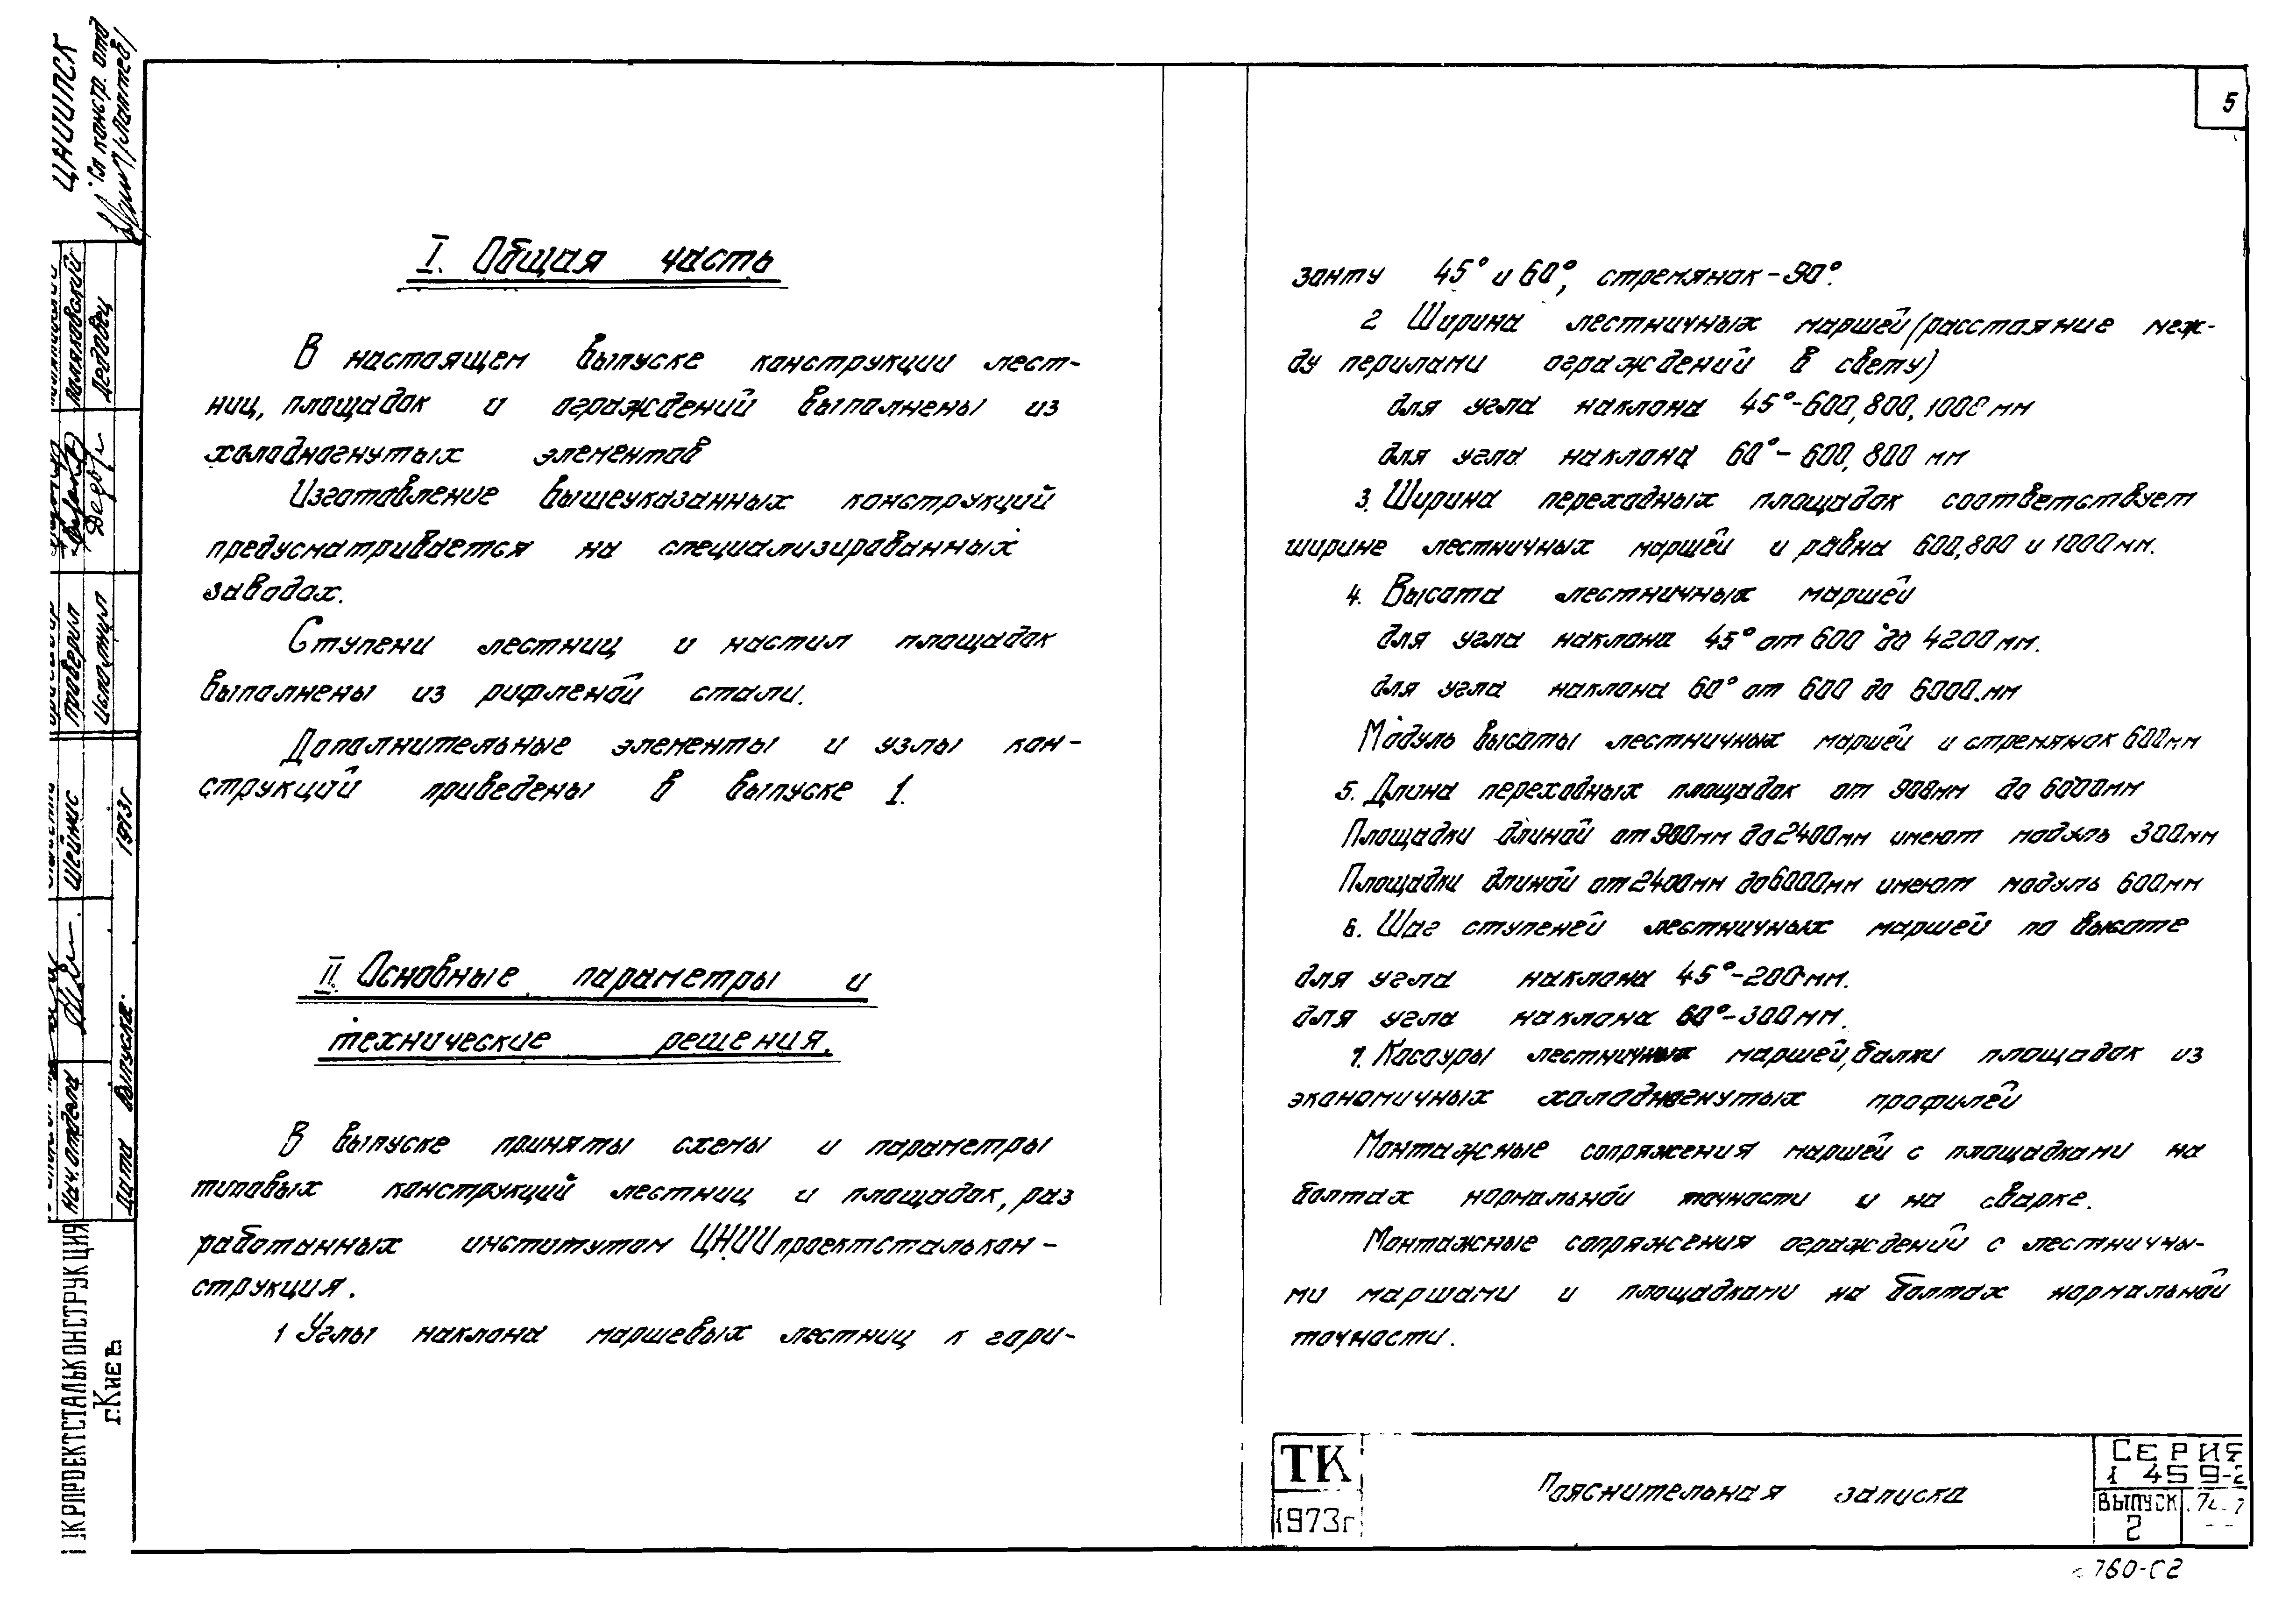 5
I. Общая часть
В настоящем выпуске конструкции лест-
ниц, площадок и ограждений выполнены из
холодногнутых элементов
Изготовление вышеуказанных конструкций
предусматривается на специализированных
заводах.
Ступени лестниц и настил площадок
выполнены из рифленой стали.
Дополнительные элементы и узлы кон-
струкций приведены в выпуске 1.
II. Основные параметры и
технические решения.
В выпуске приняты схемы и параметры
типовых конструкций лестниц и площадок, раз
работанных институтом ЦНИИпроектсталькон-
струкция.
1 Углы наклона маршевых лестниц к гори-
зонту 45° и 60°, стремянок-90°.
2 Ширина лестничных маршей (расстояние меж-
ду перилами ограждений в свету)
для угла наклона 45°-600, 800, 1000 мм
для угла наклона 60°-600, 800 мм
3. Ширина переходных площадок соответствует
ширине лестничных маршей и равна 600, 800 и 1000мм.
4. Высота лестничных маршей
для угла наклона 45° от 600 до 4200мм.
для угла наклона 60° от 600 до 6000.мм
Модуль высоты лестничных маршей и стремянок 600мм
5. Длина переходных площадок от 900мм до 6000мм
Площадки длиной от 900мм до 2400мм имеют модуль 300мм
Площадки длиной от 2400мм до 6000мм имеют модуль 600мм
6. Шаг ступеней лестничных маршей по высоте
для угла наклона 45°-200мм.
для угла наклона 60°-300мм.
7. Косоуры лестничных маршей, балки площадок из
экономичных холодногнутых профилей
Монтажные сопряжения маршей с площадками на
болтах нормальной точности и на сварке.
Монтажные сопряжения ограждений с лестничны-
ми маршами и площадками на болтах нормальной
точности.
ТК
1973г
Пояснительная записка
СЕРИЯ
1 459-2
ВЫПУСК
2
760-02
ЦНИИПСК
Гл констр. отд
/Лаптев/
Поляковский
Дедовец
проверил
Исполнил
Шеймис
1973г
Нач. отдела
Дата выпуска:
УКРПРОЕКТСТАЛЬКОНСТРУКЦИЯ
г.Киев